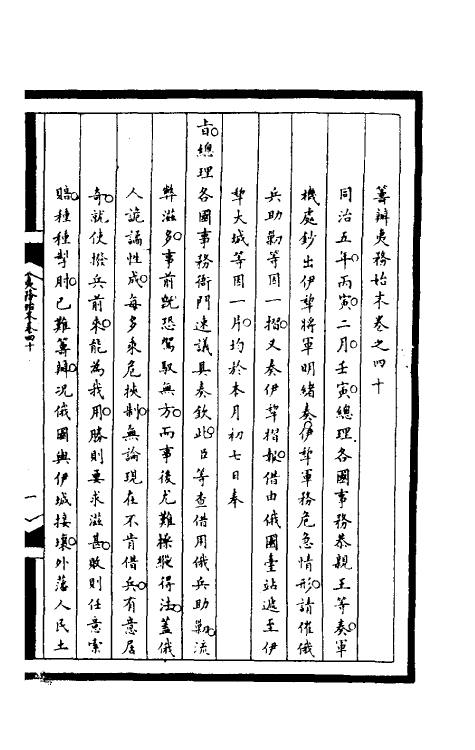 籌辦夷務始末卷之四十
同治五年丙寅二月壬寅總理各國事務恭親王等奏軍
機處鈔出伊犂將軍明緒奏伊犂軍務危急情形請催俄
兵助勦等因一摺又奏伊犂摺報借由俄國臺站遞至伊
犂大城等因一片均於本月初七日奉
旨總理各國事務衙門速議具奏欽此臣等查借用俄兵助勦流
弊滋多事前既恐駕馭無方而事後尤難操縱得法蓋俄
人詭譎性成每多乘危挾制無論現在不肯借兵有意居
奇就使撥兵前來能為我用勝則要求滋甚敗則任意索
賠種種掣肘已難籌辦況俄國與伊城接壤外藩人民土
夷務始末卷四十
一